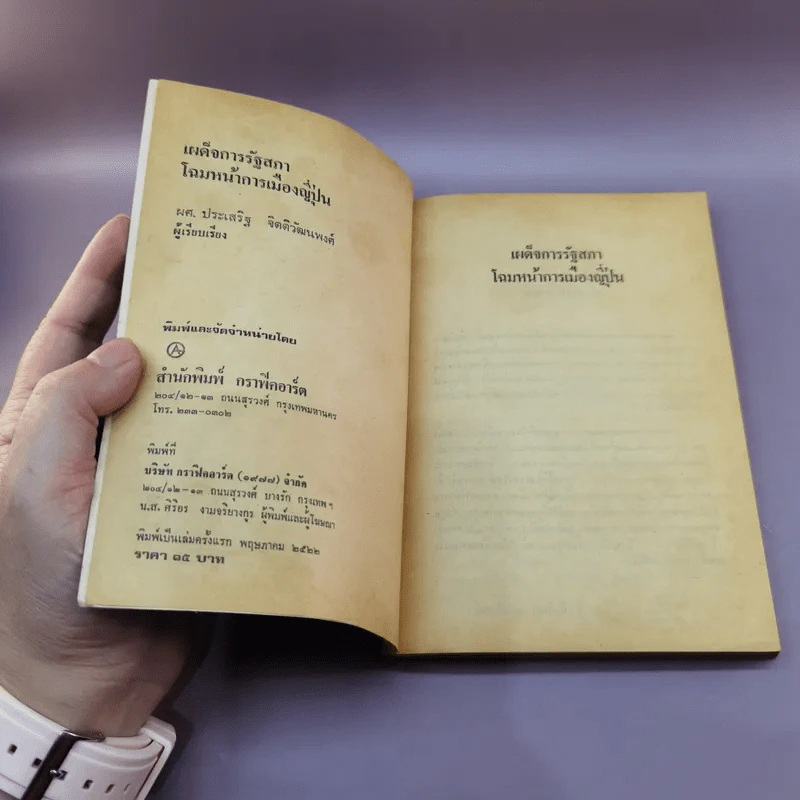 เผด็จการรัฐสภา
โฉมหน้าการเมืองญี่ปุ่น
ผศ. ประเสริฐ จิตติวัฒนพงศ์
ผู้เรียบเรียง
พิมพ์และจัดจำหน่ายโดย
สำนักพิมพ์ กราฟิคอาร์ต
๒๐๔/๑๒-๑๓ ถนนสุรวงศ์ กรุงเทพมหานคร
โทร. ๒๓๓-๐๓๐๒
พิมพ์ที่
บริษัท กราฟิคอาร์ต (๑๙๗๗) จำกัด
๒๐๔/๑๒-๑๓ ถนนสุรวงศ์ บางรัก กรุงเทพฯ
น.ส. ศิริอร งามจริยางกูร ผู้พิมพ์และผู้โฆษณา
พิมพ์เป็นเล่มครั้งแรก พฤษภาคม ๒๕๒๒
ราคา ๑๕ บาท
เผด็จการรัฐสภา
โฉมหน้าการเมืองญี่ปุ่น